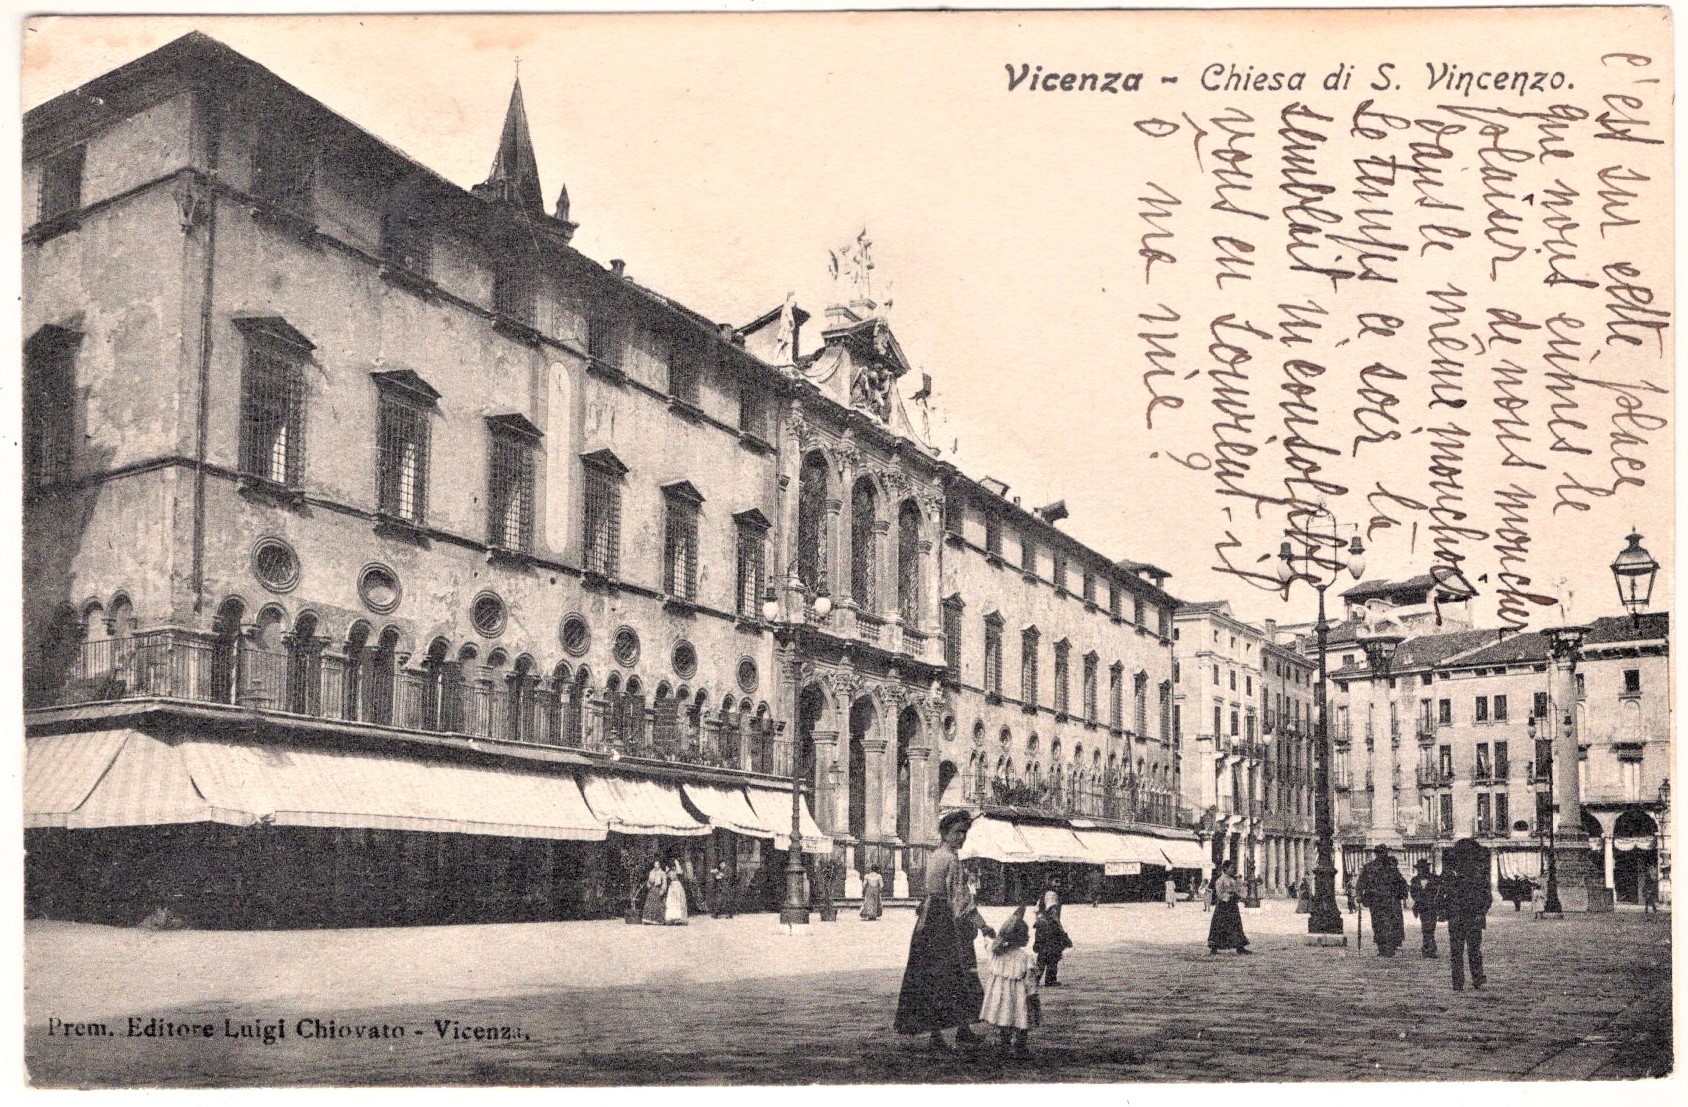 Vicenza - Chiesa di S. Vincenzo.
c'est sur cette place
que nous eûmes le
plaisir de nous moucher
dans le même mouchoir
Le temps ce soir là
semblait inconsolable
vous en souvient-il
ô ma mie ?
Prem. Editore Luigi Chiovato - Vicenza.